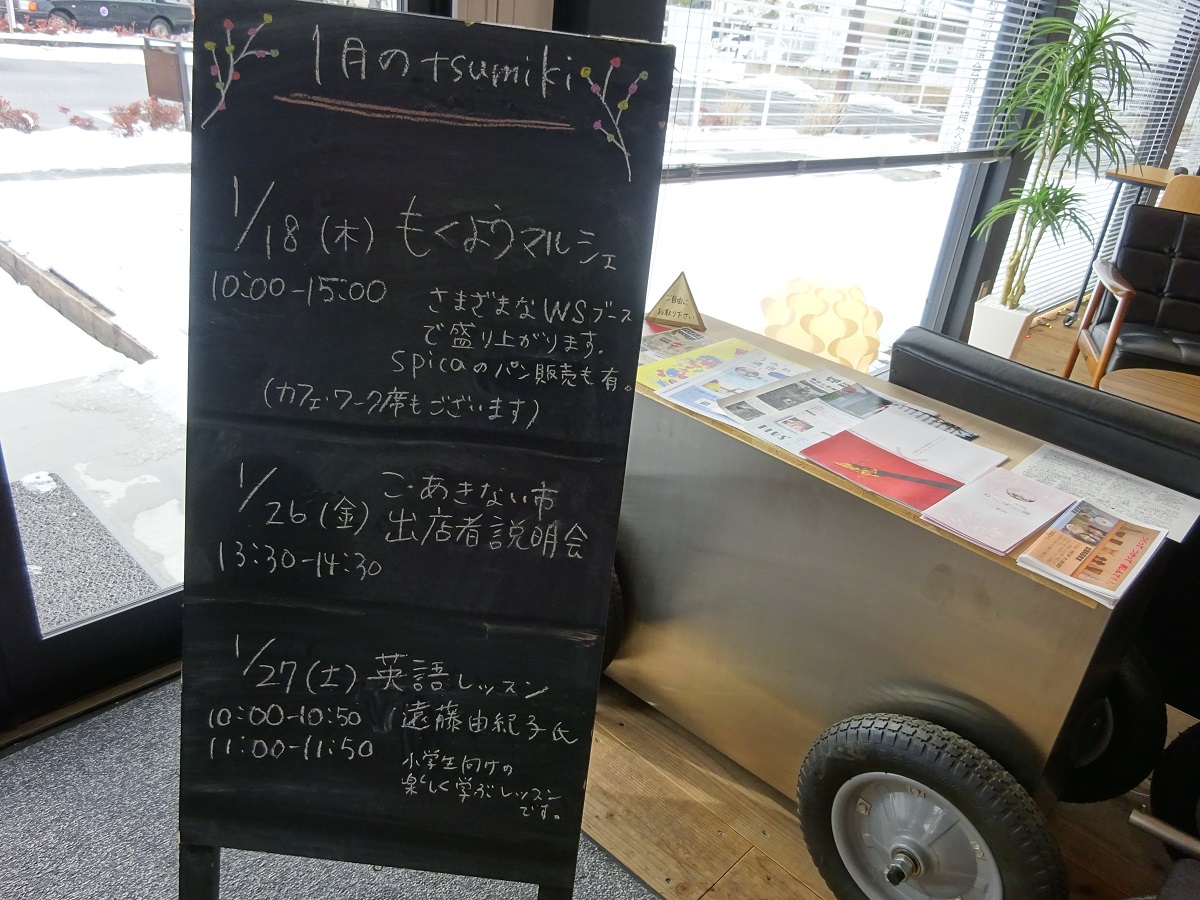 1月のtsumiki
1/18(木) もくようマルシェ
10:00-15:00
さまざまなWSブース
で盛り上がります。
spicaのパン販売も有。
(カフェ・ワーク席もございます)
1/26(金) ご・あきない市
出店者説明会
13:30-14:30
1/27(土) 英語レッスン
10:00-10:50
11:00-11:50
遠藤由紀子氏
小学生向けの
楽しく学ぶレッスン
です。
ご自由に
お取り下さい